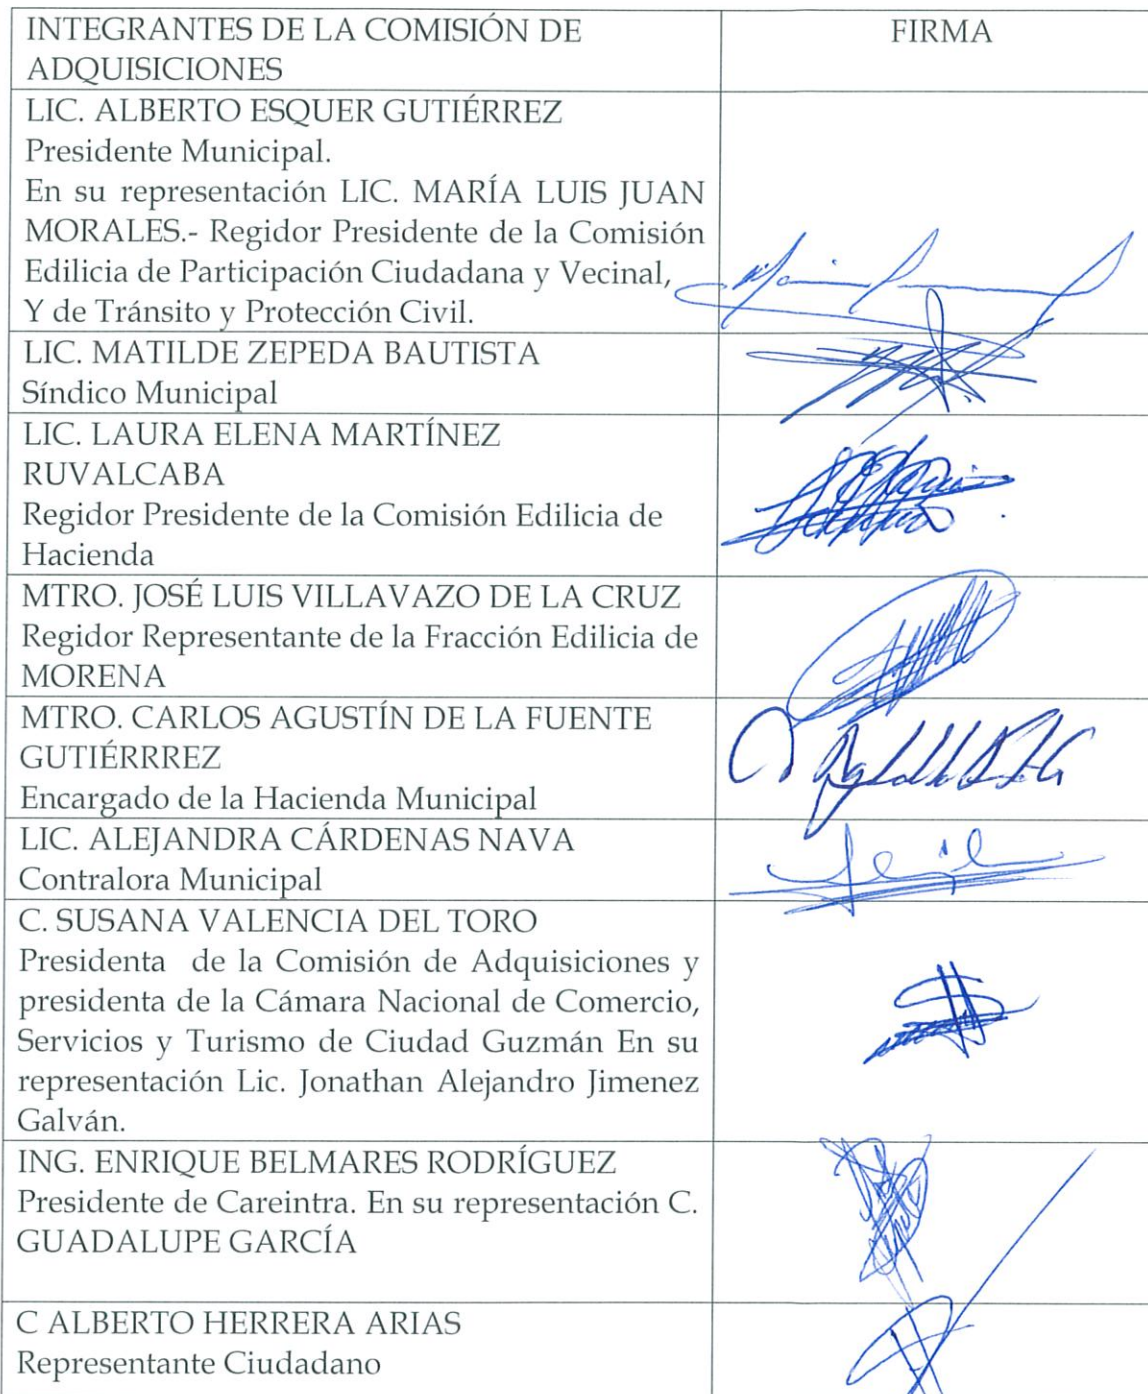 INTEGRANTES DE LA COMISIÓN DE
ADQUISICIONES
FIRMA
LIC. ALBERTO ESQUER GUTIÉRREZ
Presidente Municipal.
En su representación LIC. MARÍA LUIS JUAN
MORALES.- Regidor Presidente de la Comisión
Edilicia de Participación Ciudadana y Vecinal,
Y de Tránsito y Protección Civil.
LIC. MATILDE ZEPEDA BAUTISTA
Síndico Municipal
LIC. LAURA ELENA MARTÍNEZ
RUVALCABA
Regidor Presidente de la Comisión Edilicia de
Hacienda
MTRO. JOSÉ LUIS VILLAVAZO DE LA CRUZ
Regidor Representante de la Fracción Edilicia de
MORENA
MTRO. CARLOS AGUSTÍN DE LA FUENTE
GUTIÉRRREZ
Encargado de la Hacienda Municipal
LIC. ALEJANDRA CÁRDENAS NAVA
Contralora Municipal
C. SUSANA VALENCIA DEL TORO
Presidenta de la Comisión de Adquisiciones y
presidenta de la Cámara Nacional de Comercio,
Servicios y Turismo de Ciudad Guzmán En su
representación Lic. Jonathan Alejandro Jimenez
Galván.
ING. ENRIQUE BELMARES RODRÍGUEZ
Presidente de Careintra. En su representación C.
GUADALUPE GARCÍA
C ALBERTO HERRERA ARIAS
Representante Ciudadano